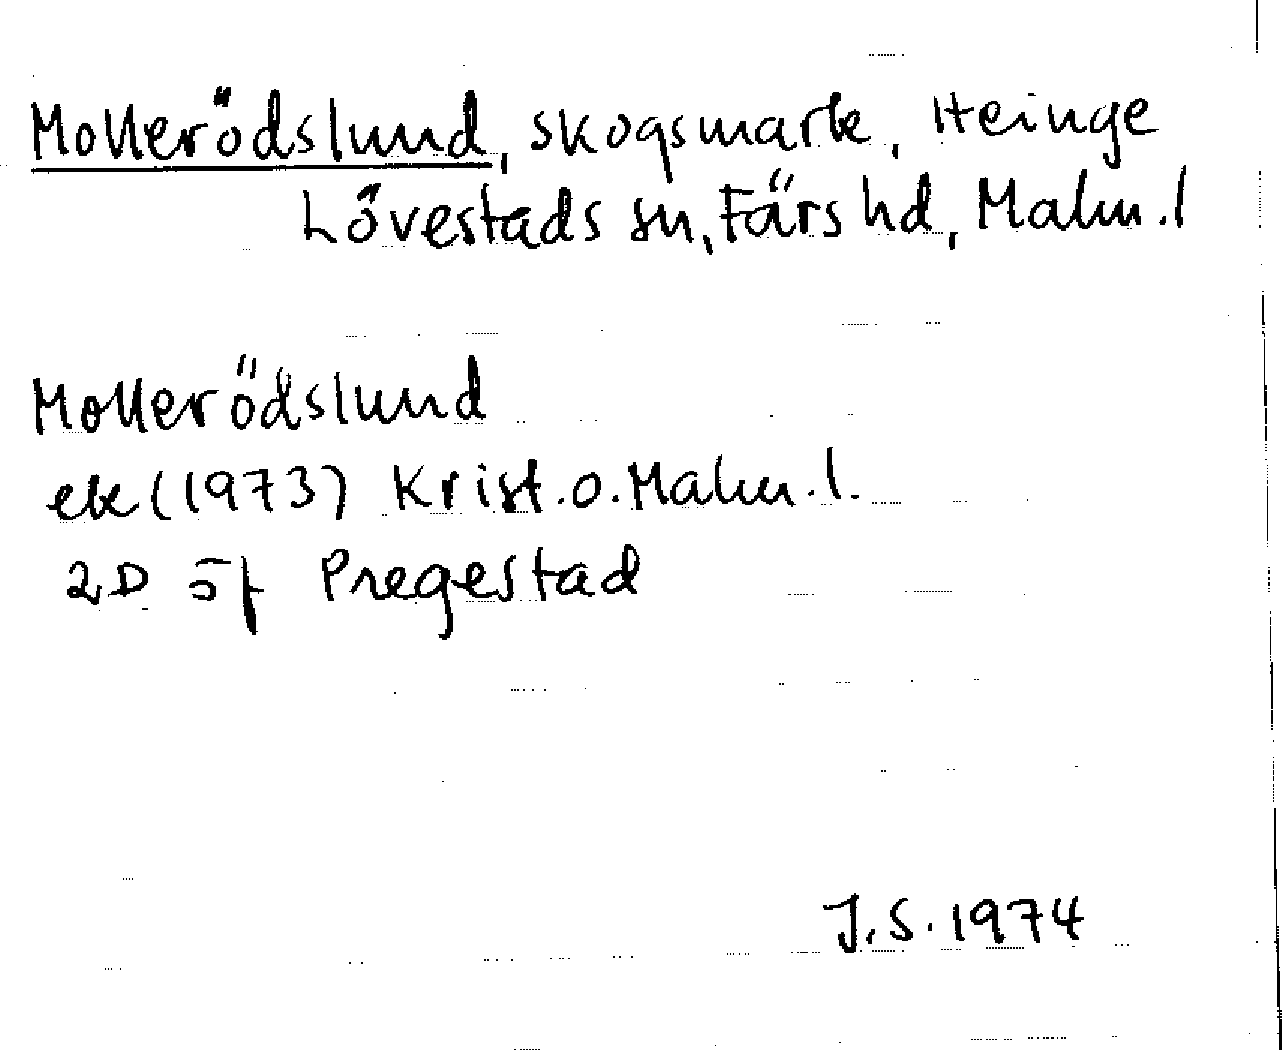 Mollerödslund, skogsmark, Heinge
Lövestads sn, Färs hd, Malm.l
Mollerödslund
ek (1973) Krist.o.Malm.l.
2D öf Pregestad
J.S.1974